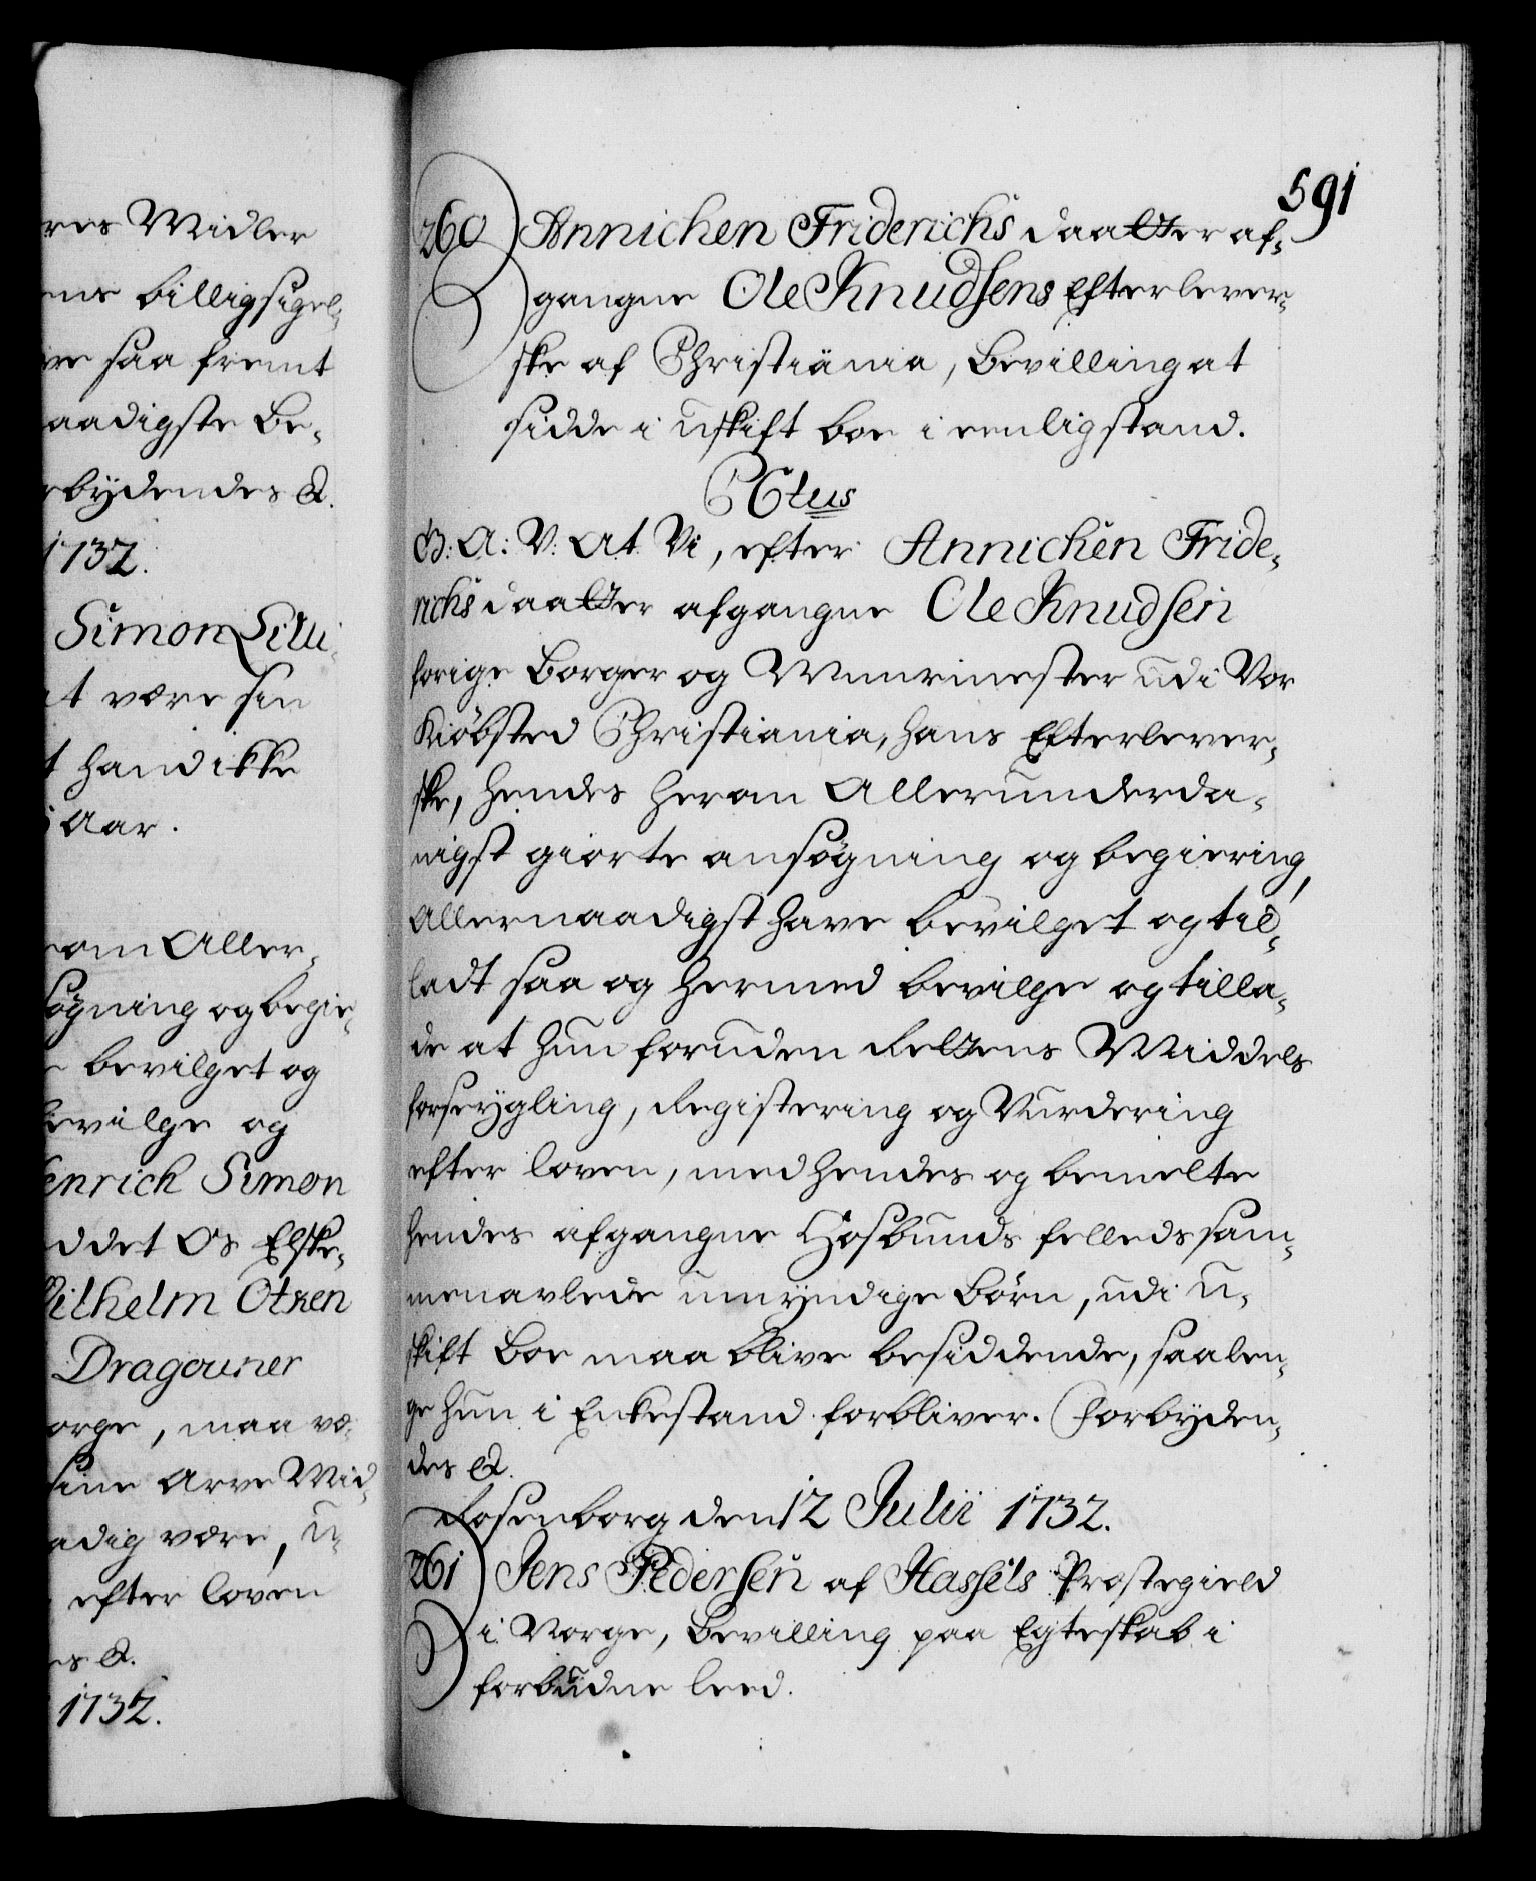 res Midler
ens billigsigel-
ve saa fremt
aadigste Be-
rbÿdendes &.
1732.
Simon Litli-
at være sin
t hand ikke
Aar.
rom Aller-
søgning og begie-
e bevilget og
bevilge og
enrich Simon
ddet Os Elske-
Wilhelm Otken
Dragouner
orge, maa væ-
sine Arve Mid-
adig være, u-
efter Loven
es &.
1732.
591
260 Annichen Friderichs daatter af-
gangne Ole Knudsens Efterlever-
ske af Christiania, Bevilling at
sidde i uskift boe i eenlig stand.
C 6tus
G: A: V: At Vi, efter Annichen Fride-
richs daatter afgangne Ole Knudsen
forige Borger og Muurmester udi Vor
Kiøbsted Christiania, hans Efterlever-
ske, hendes herom Allerunderda-
nigst giorte ansøgning og begiering,
Allernaadigst have bevilget og til-
ladt saa og hermed bevilge og tilla-
de at hun foruden Rettens Middels
forseÿgling, Registering og Vurdering
efter loven, med hendes og bemelte
hendes afgangne Hosbunds felleds sam-
menavlede umÿndige Børn, udi u-
skift Boe maa blive besiddende, saalen-
ge hun i Enkestand forbliver. Forbÿden-
des &.
Rosenborg den 12 Julii 1732.
261 Jens Pedersen af Hassels Præstegield
i Norge, Bevilling paa Egteskab i
forbudne leed.